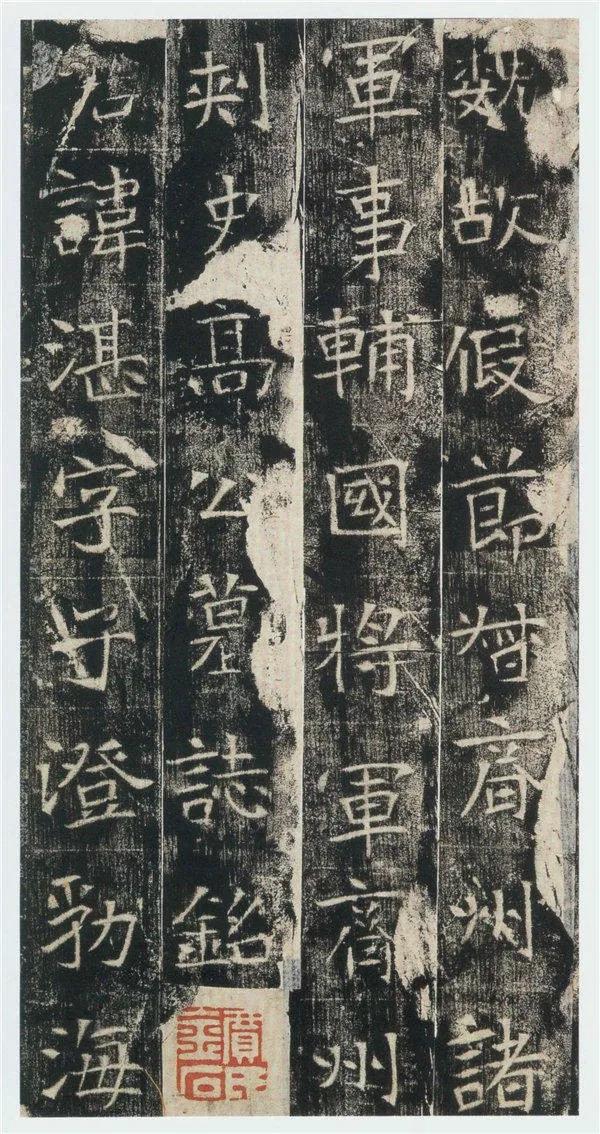 魏故假節督齊州諸
軍事輔國將軍齊州
刾史髙公墓誌銘
君諱湛字子澄勃海